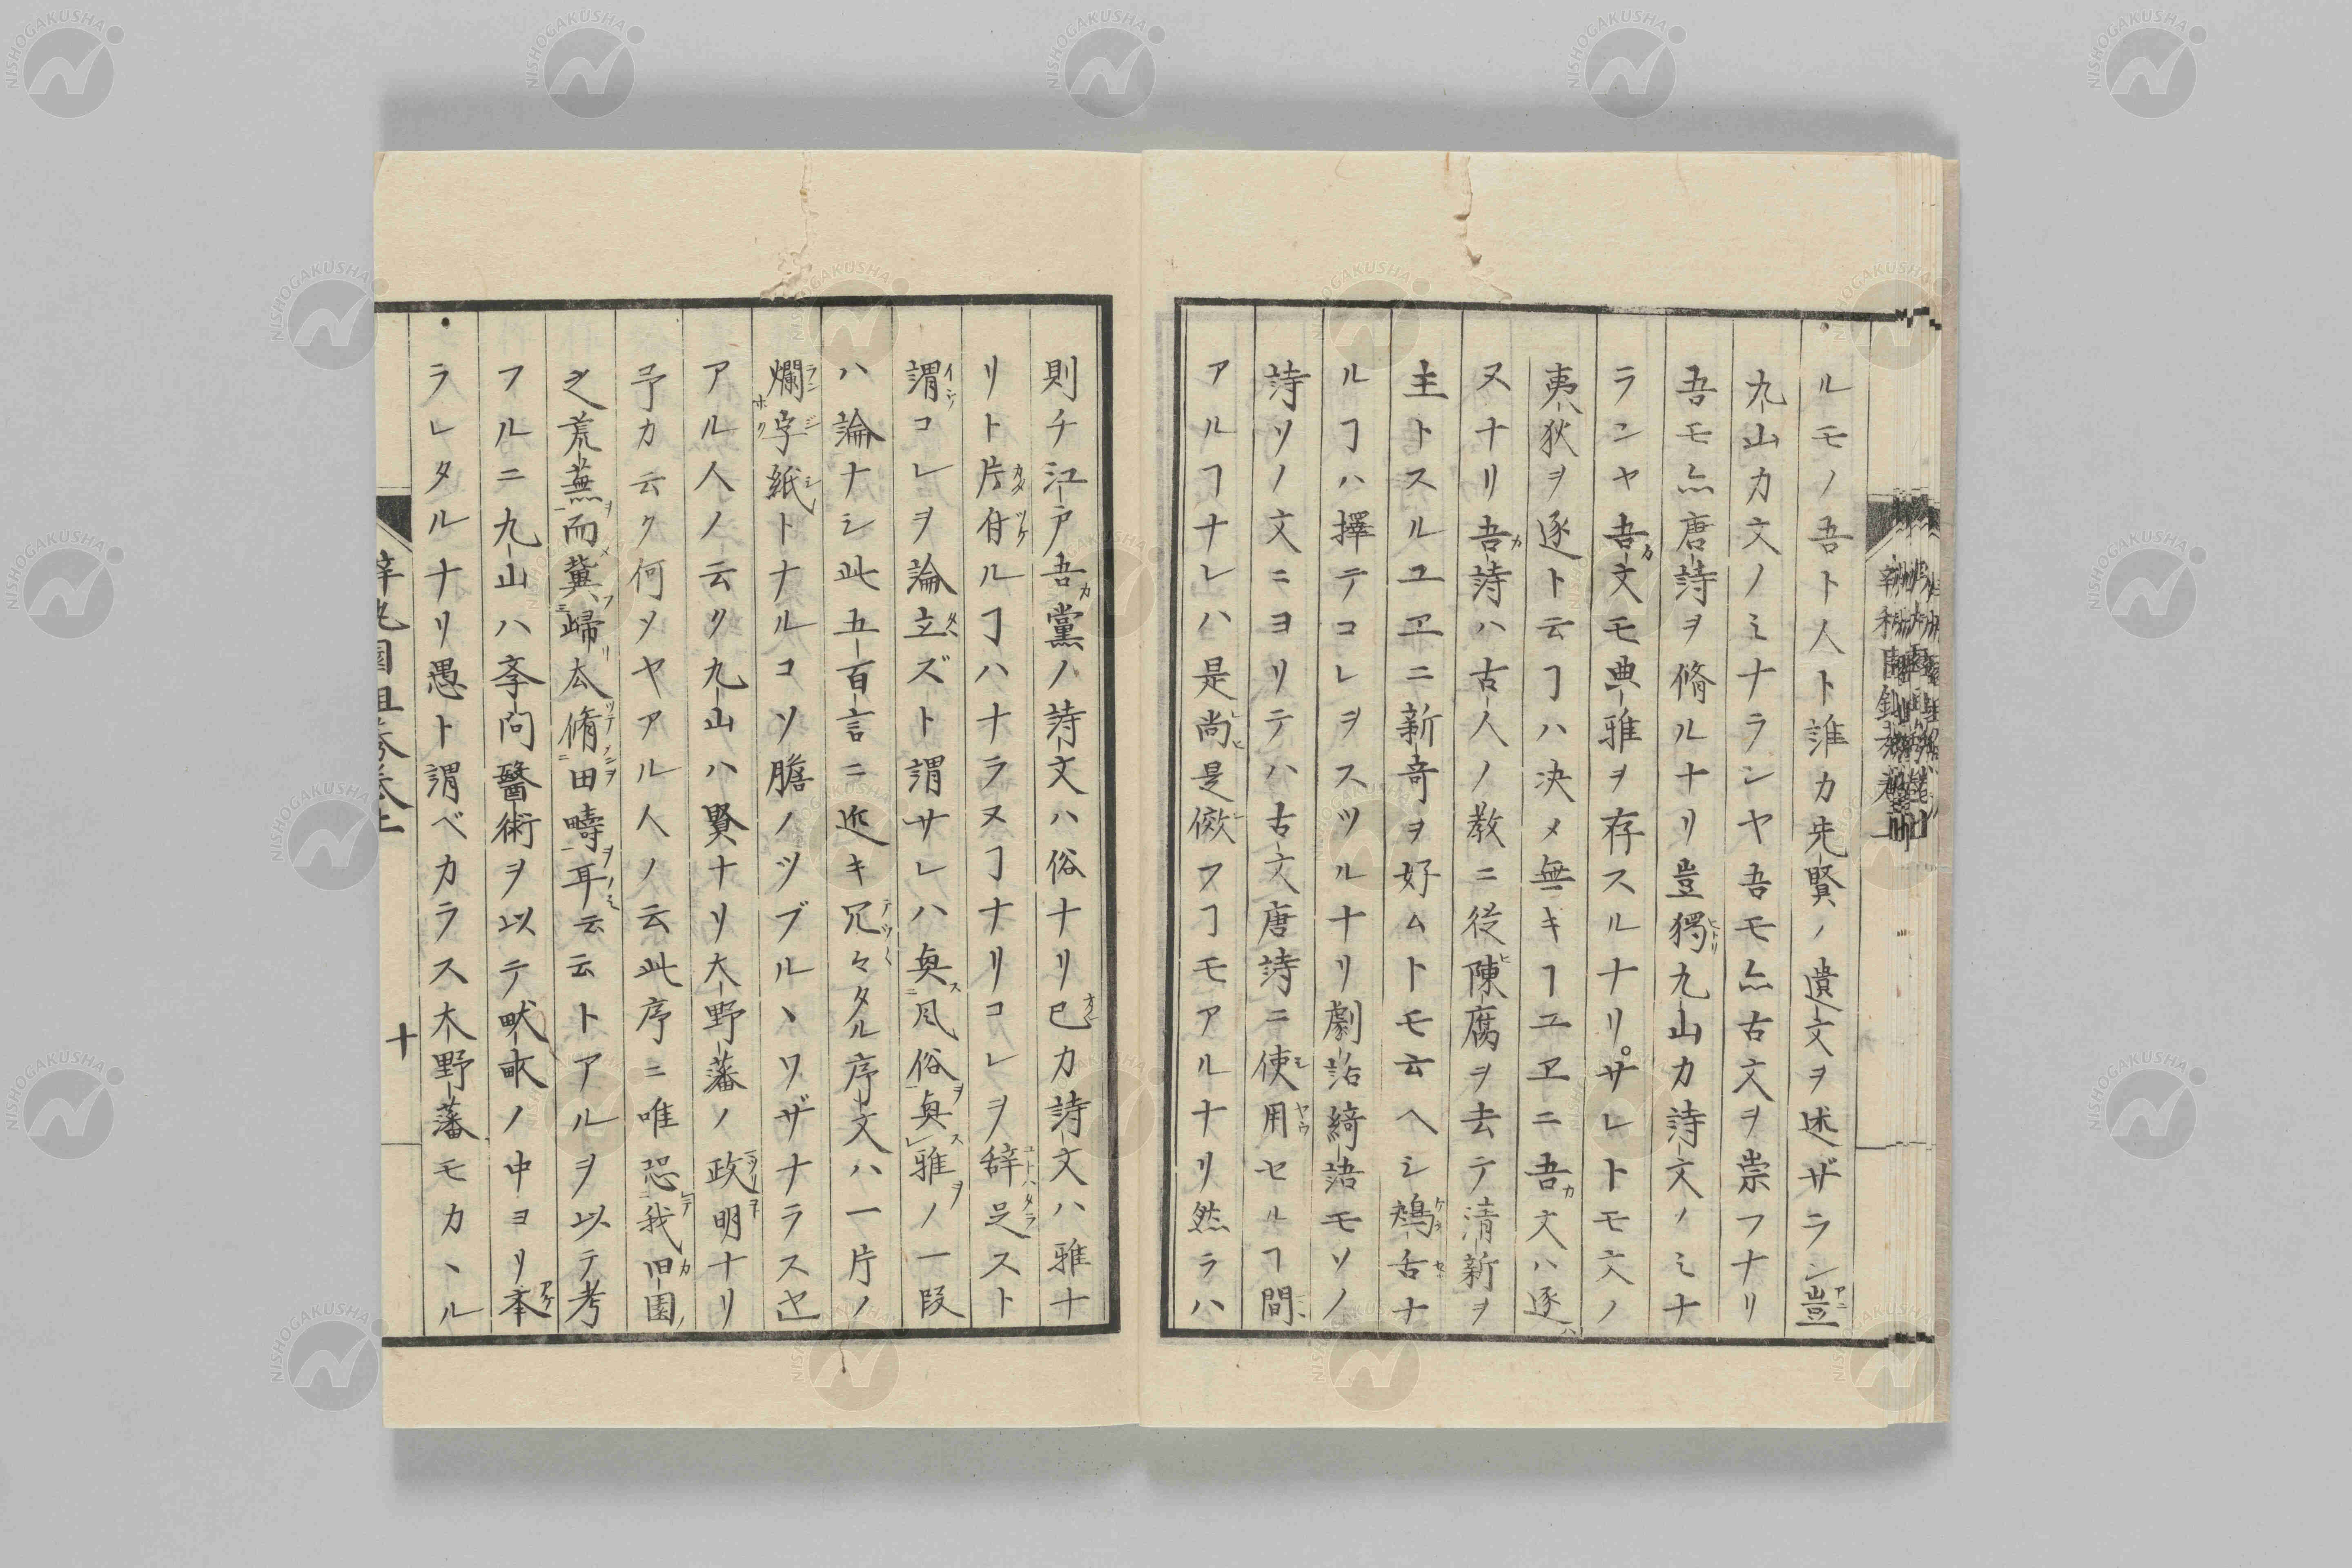 ルモノ吾ト人ト誰カ先賢ノ遺文ヲ述ザラン豈
九山カ文ノミナランヤ吾モ亦古文ヲ崇フナリ
吾モ亦唐詩ヲ脩ルナリ豈獨九山カ詩文ノミナ
ランヤ吾文モ典雅ヲ存スルナリサレトモ文ノ
夷狄ヲ逐ト云ヿハ决メ無キヿユヱニ吾文ハ逐
ヌナリ吾詩ハ古人ノ教ニ從陳腐ヲ去テ清新ヲ
主トスルユヱニ新奇ヲ好ムトモ云ヘシ鴂舌ナ
ルヿハ擇テコレヲスツルナリ劇話綺語モソノ
詩ソノ文ニヨリテハ古文唐詩ニ使用セルヿ間
アルヿナレハ是尚是傚フヿモアルナリ然ラハ
則チ江戸吾黨ノ詩文ハ俗ナリ己カ詩文ハ雅ナ
リト片付ルヿハナラヌヿナリコレヲ辞足スト
謂コレヲ論立ズト謂サレハ奥風俗奥雅ノ一段
ハ論ナシ此五百言ニ近キ冗々タル序文ハ一片ノ
爛字紙トナルコソ膽ノツブルヽワザナラスヤ
アル人ノ云ク九山ハ賢ナリ大野藩ノ政明ナリ
予カ云ク何ソヤアル人ノ云此序ニ唯恐我旧園
之荒蕪而冀歸太脩田疇耳云云トアルヲ以テ考
フルニ九山ハ斈問醫術ヲ以テ畎畝ノ中ヨリ奉
ラレタルナリ愚ト謂ベカラス大野藩モカヽル
十